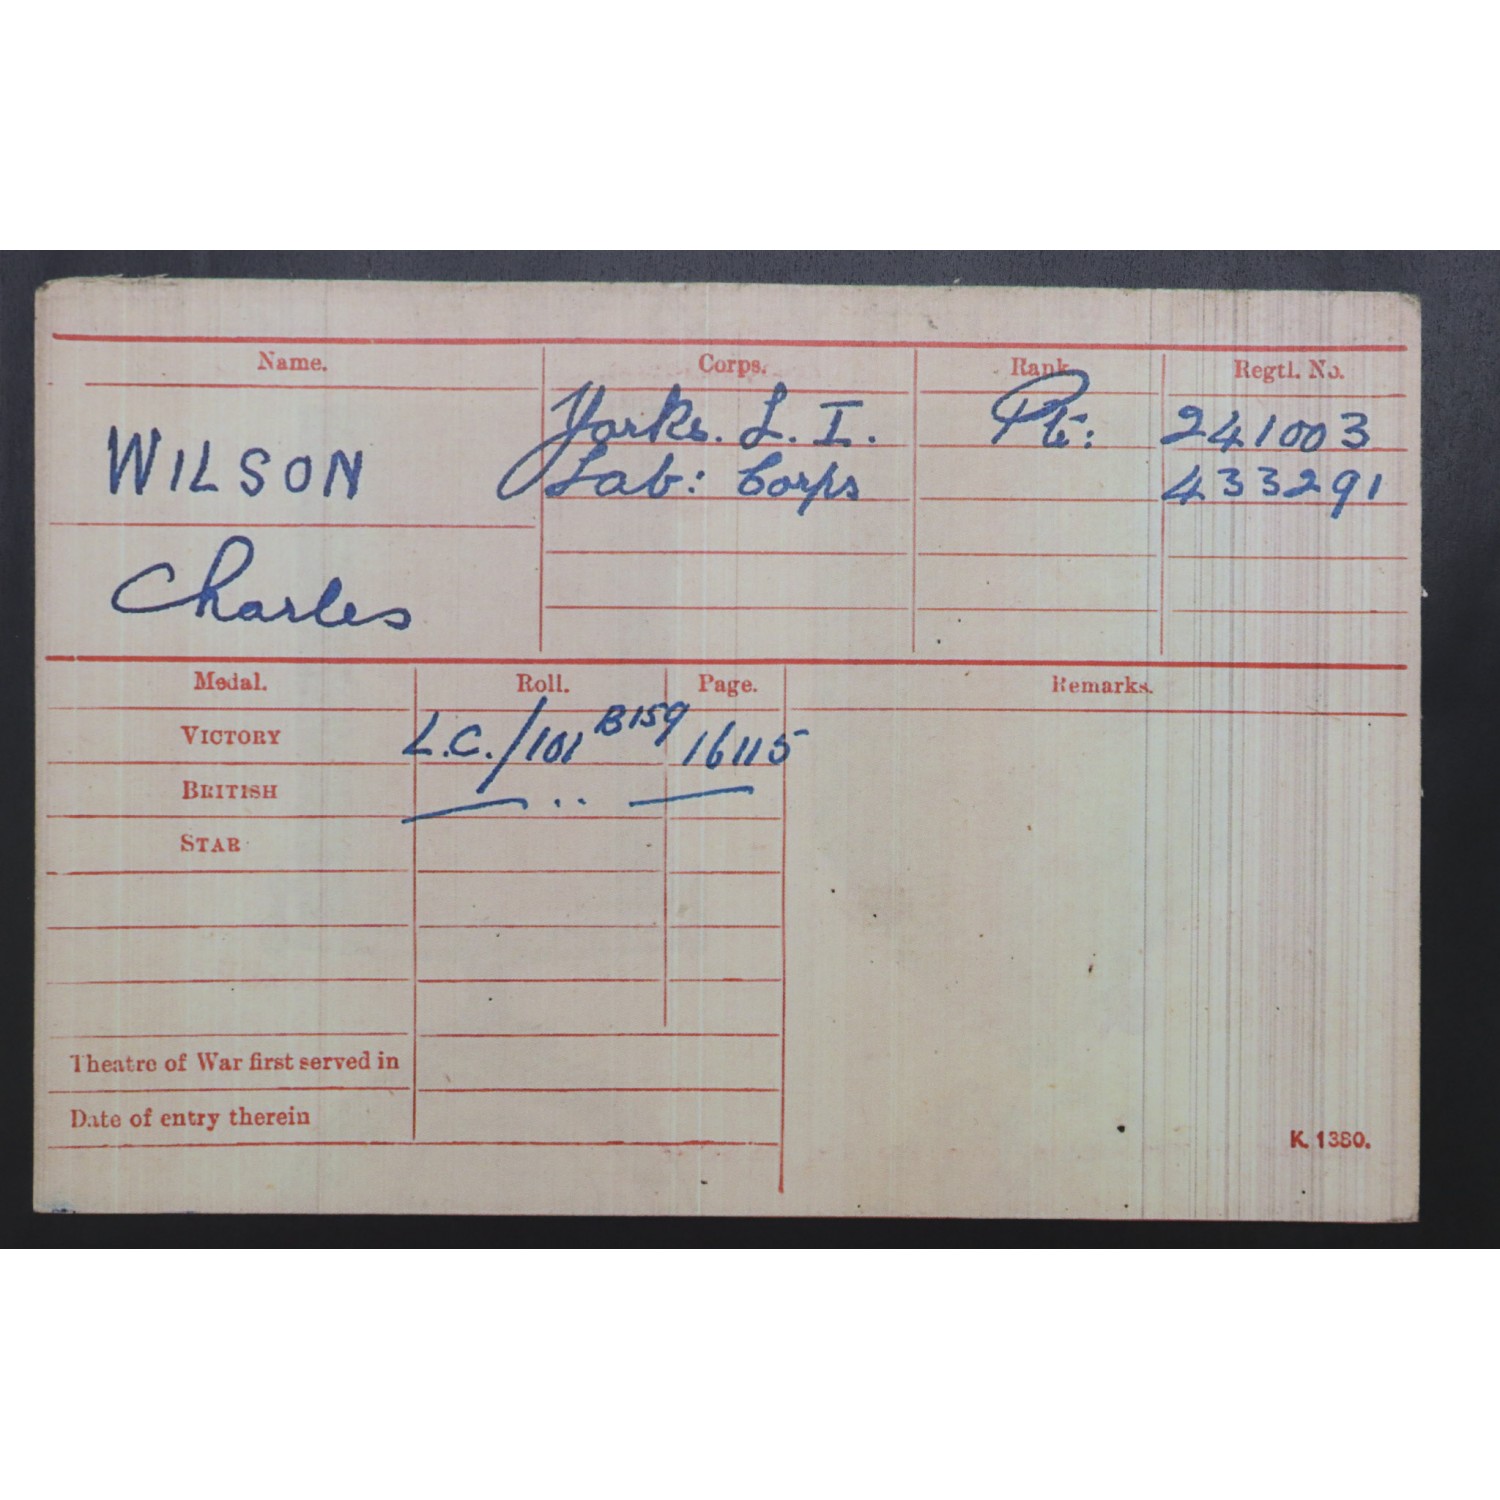 Name. Corps. Rank Regtl. No.
WILSON Yorks. L. I. Pte: 241003
Lab: Corps 433291
Charles
Medal. Roll. Page. Remarks.
VICTORY L.C./101 B159 16115
BRITISH — .. —
STAR
Theatre of War first served in
Date of entry therein
K. 1380.